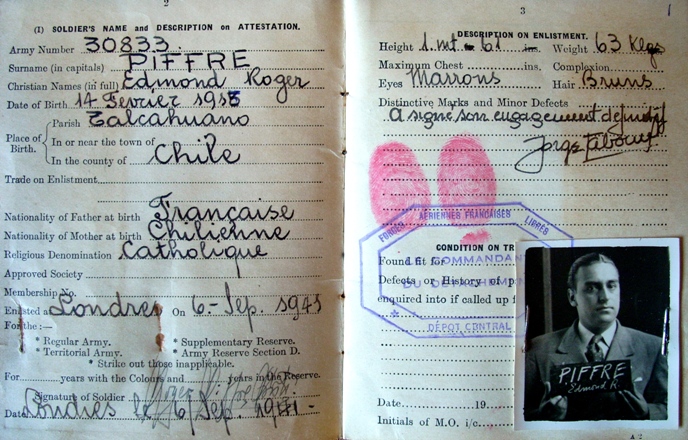 2
(1) SOLDIER'S NAME and DESCRIPTION on ATTESTATION.
Army Number 30833
Surname (in capitals) PIFFRE
Christian Names (in full) Edmond Roger
Date of Birth 14 Fevrier 1915
Place of Birth.
Parish Talcahuano
In or near the town of
In the county of Chile
Trade on Enlistment
Nationality of Father at birth Française
Nationality of Mother at birth Chilienne
Religious Denomination Catholique
Approved Society
Membership No.
Enlisted at Londres on 6-Sep. 1941
For the :—
* Regular Army. * Supplementary Reserve.
* Territorial Army. * Army Reserve Section D.
* Strike out those inapplicable.
For years with the Colours and years in the Reserve.
Signature of Soldier
Date Londres le 6 Sep. 1941-
3
1
DESCRIPTION ON ENLISTMENT.
Height 1.mt 61 ins. Weight 63 Klgs
Maximum Chest ins. Complexion
Eyes Marrons Hair Bruns
Distinctive Marks and Minor Defects
A signé son engagement définitif
FORCES AERIENNES FRANÇAISES LIBRES
CONDITION ON TR
Found fit for
LE COMMANDAN
Defects or History of p
DU DETACHEMEN
enquired into if called up f
DÉPOT CENTRAL
PIFFRE
Edmond R.
Date 19
Initials of M.O. i/c
A 2